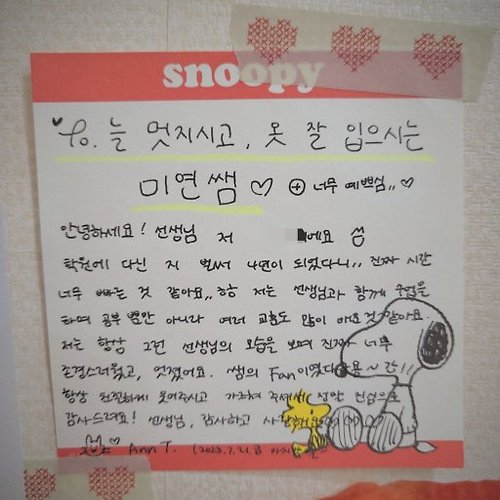 snoopy
To. 늘 멋지시고, 옷 잘 입으시는
미연쌤♡ ⊕ 너무 예쁘심,, ♡
안녕하세요! 선생님 저 에요
학원에 다닌 지 벌써 4년이 되었다니,, 진짜 시간
너무 빠른 것 같아요,, ㅎㅎ 저는 선생님과 함께 수업을
하며 공부 뿐만 아니라 여러 교훈도 많이 얻은 것 같아요.
저는 항상 그런 선생님의 모습을 보며 진짜 너무
존경스러웠고, 멋졌어요. 쌤의 Fan이였다
항상 친절하게 웃어주시고 가르쳐 주셔서 정말 진심으로
감사드려요! 선생님, 감사하고 사랑해요
Ann T. (2023.7.21.금